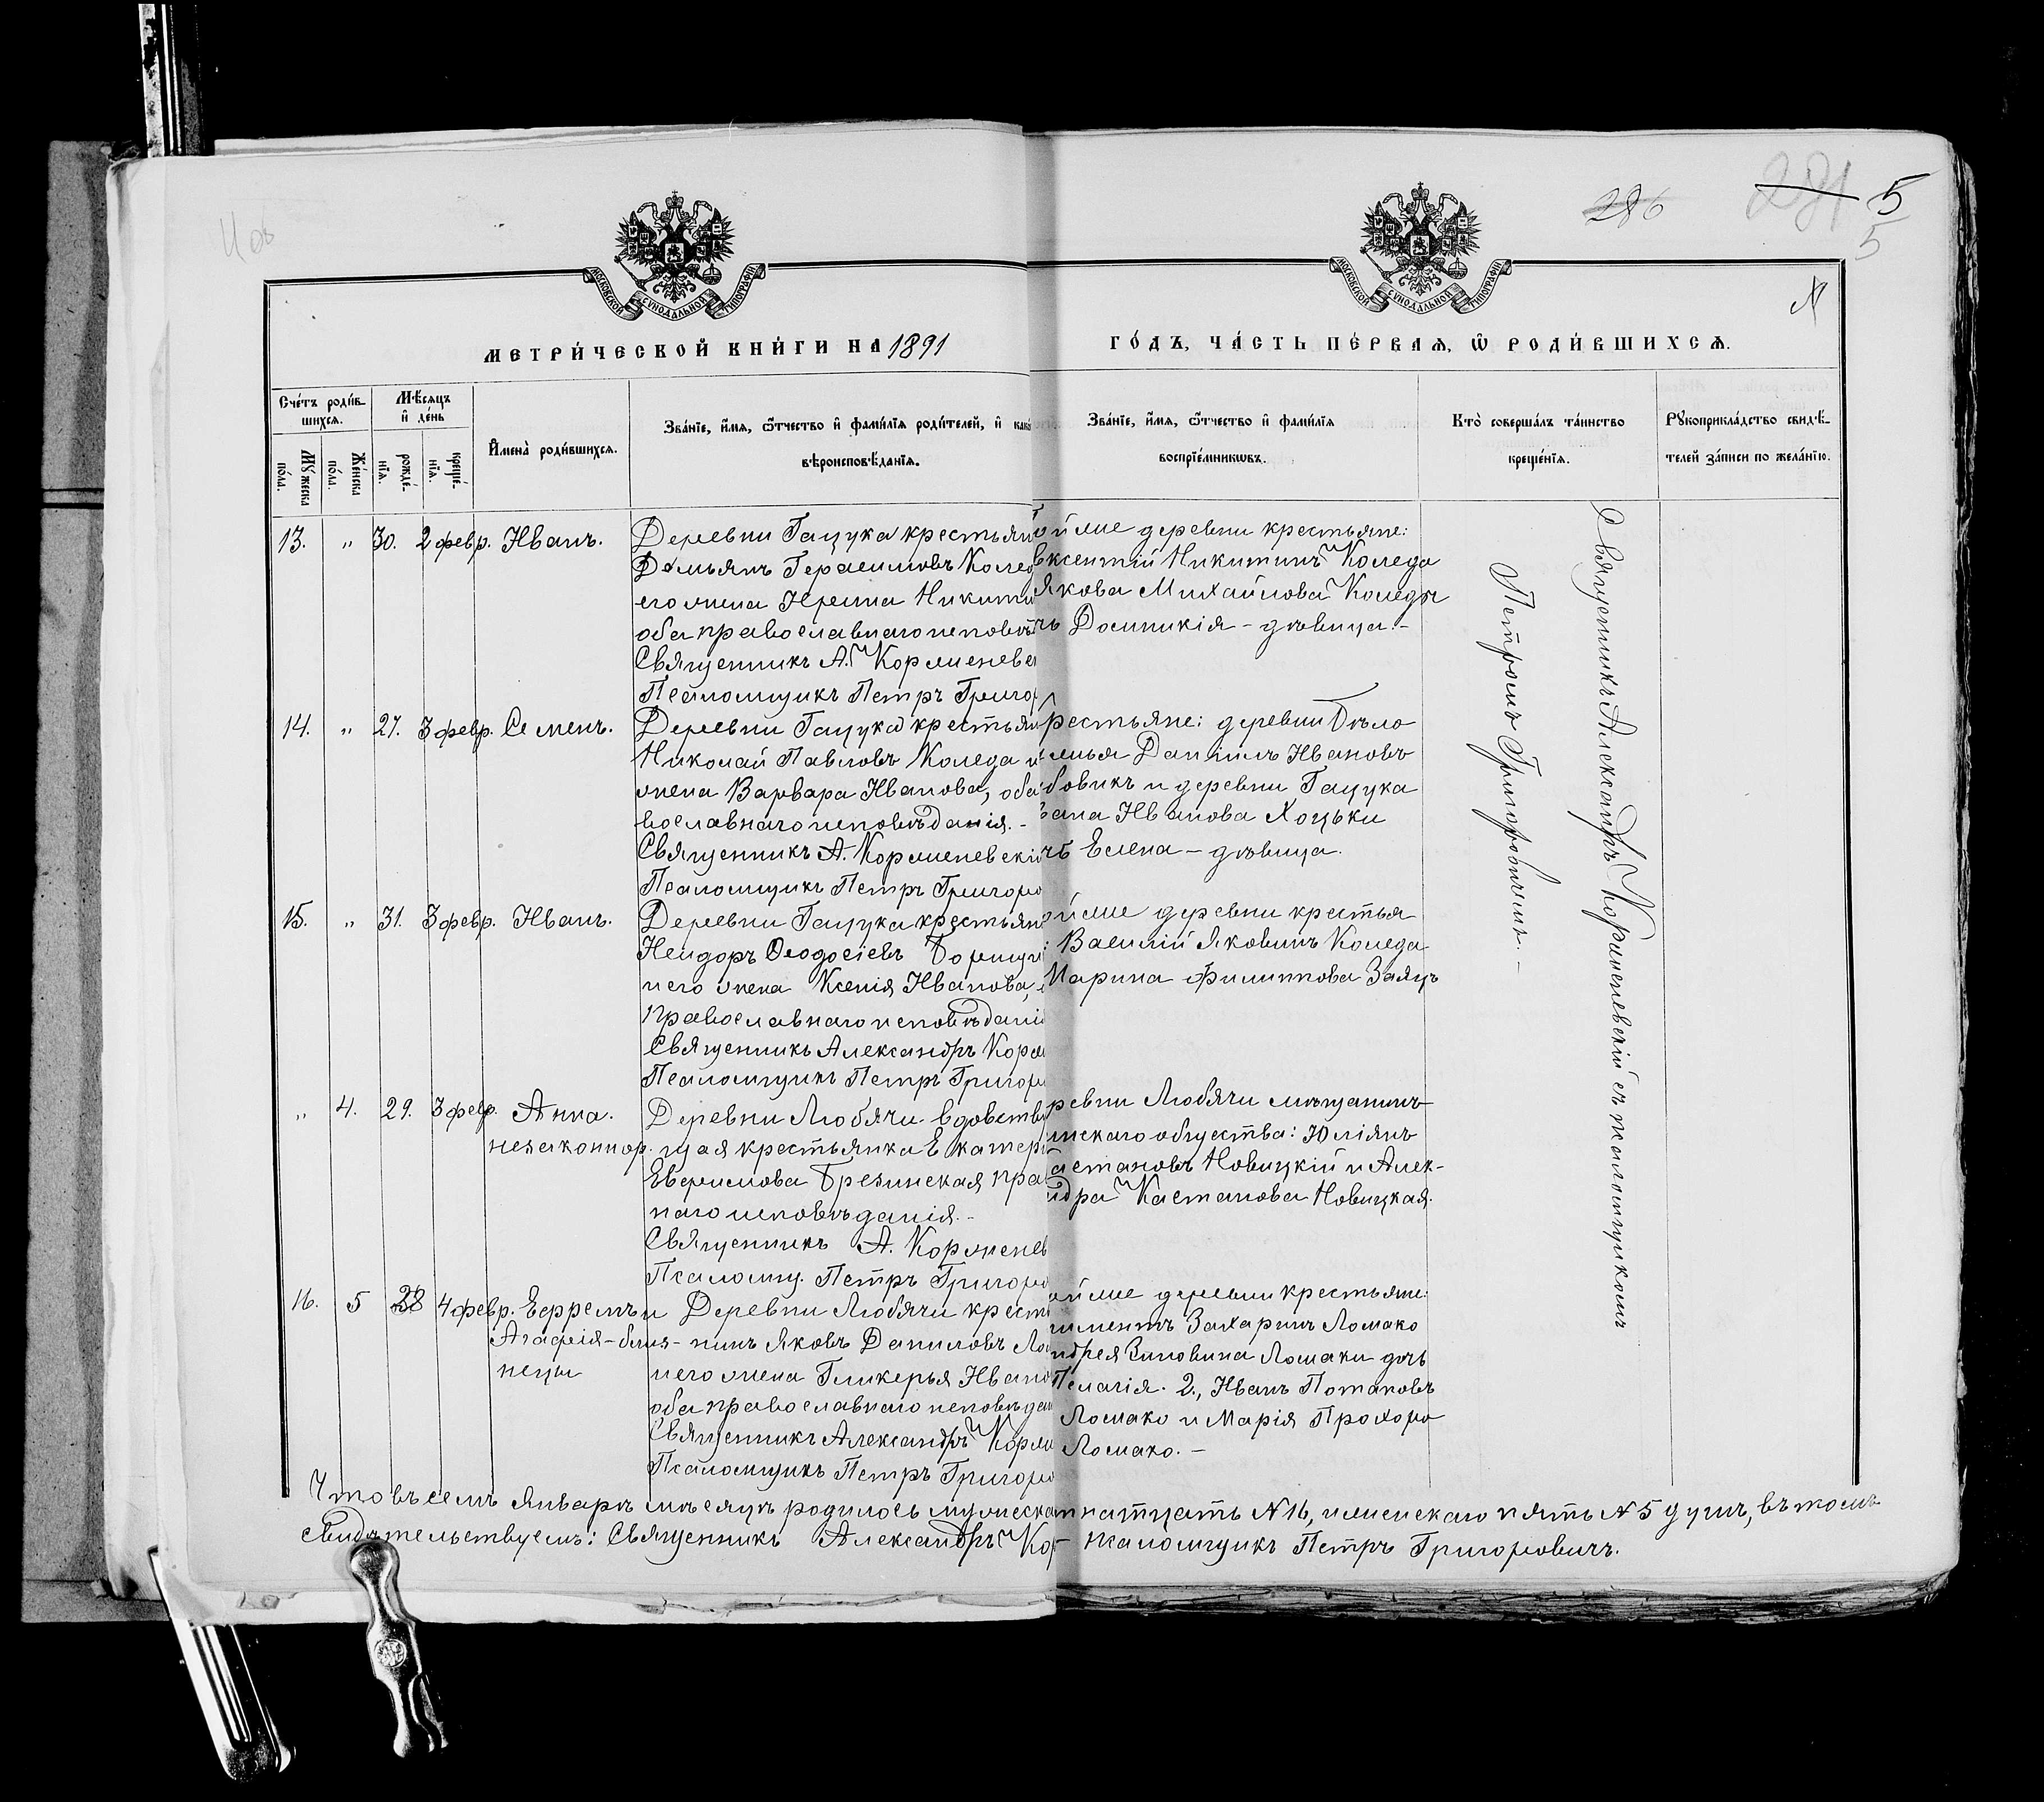 4 об
226
281 5
5
МОСКОВСКОЙ СУНОДАЛЬНОЙ ТИПОГРАФІИ
МОСКОВСКОЙ СУНОДАЛЬНОЙ ТИПОГРАФІИ
МЕТРИ́ЧЕСКОЙ КНИ́ГИ НА 1891
ГО́ДЪ, ЧА́СТЬ ПЕ́РВАЯ, Ѡ РОДИ́ВШИХСЯ.
Сче́тъ роди́в-
шихся.
Мѣ́сяцъ
и҆ де́нь
Му́жеска
по́ла.
Же́нска
по́ла.
рожде́-
нїя.
креще́-
нїя.
И҆мена̀ роди́вшихся.
Зва́нїе, и҆́мя, ѻ҆́тчество и҆ фами́лїя роди́телей, и҆ как
вѣроисповѣ́данїя.
Зва́нїе, и҆́мя, ѻ҆́тчество и҆ фами́лїя
воспрїе́мникѡвъ.
Кто̀ соверша́лъ та́инство
креще́нїя.
Рꙋкоприкла́дство свидѣ́-
телей за́писи по жела́нїю.
13. " 30. 2 февр. Иванъ.
Деревни Гацука крестьян
Демьянъ Герасимовъ Колед
его жена Ирина Никити
оба православнаго исповѣ
Священникъ А. Корженевс
Псаломщикъ Петръ Григор
ой же деревни крестьяне:
вксентій Никитинъ Коледа
Якова Михайлова Коледы
чь Домникія - дѣвица. -
14. " 27. 3 февр. Семенъ.
Деревни Гацука крестьян
Николай Павловъ Коледа и
жена Варвара Иванова, оба
вославнаго исповѣданія. -
Священникъ А. Корженевскій
Псаломщикъ Петръ Григоро
рестьяне: деревни Бѣло
Даніилъ Ивановъ
бовикъ и деревни Гацука
вана Иванова Хоцьки
чь Елена - дѣвица.
15. " 31. 3 февр. Иванъ.
Деревни Гацука крестьян
Исидоръ Ѳеодосіевъ Борщу
и его жена Ксенія Иванова,
православнаго исповѣдані
Священникъ Александръ Корж
Псаломщикъ Петръ Григоро
ой же деревни крестья
Василій Яковинъ Коледа
Марина Филиппова Заяцъ
" 4. 29. 3 февр. Анна.
незаконнор.
Деревни Любячи вдовств
щая крестьянка Екатери
Евфимова Брезинская пра
наго исповѣданія. -
Священникъ А. Корженев
Псаломщ. Петръ Григоро
ревни Любячи мѣщанинъ
инскаго общества: Юліянъ
астановъ Новицкій и Алек-
ндра Кастанова Новицкая.
16. 5 28 4 февр. Ефремъ и
Агафія - близ-
нецы
Деревни Любячи крест
нинъ Яковъ Даниловъ Ло
и его жена Гликерья Ивано
оба православнаго исповѣдан
Священникъ Александръ Корж
Псаломщикъ Петръ Григоро
ой же деревни крестьяне:
лиментъ Захаринъ Ломако
ндрея Зиновина Ломаки дочь
Пелагія. 2., Иванъ Потаповъ
Ломако и Марія Прохоро
Ломако. -
Священникъ Александръ Корженевскій съ псаломщикомъ
Петромъ Григоровичемъ. -
Что въ семъ Январѣ мѣсяцѣ родилось мужеска натцать № 16, и женскаго пять № 5 душъ, въ томъ
свидѣтельствуемъ: Священникъ Александръ Кор Псаломщикъ Петръ Григоровичъ.